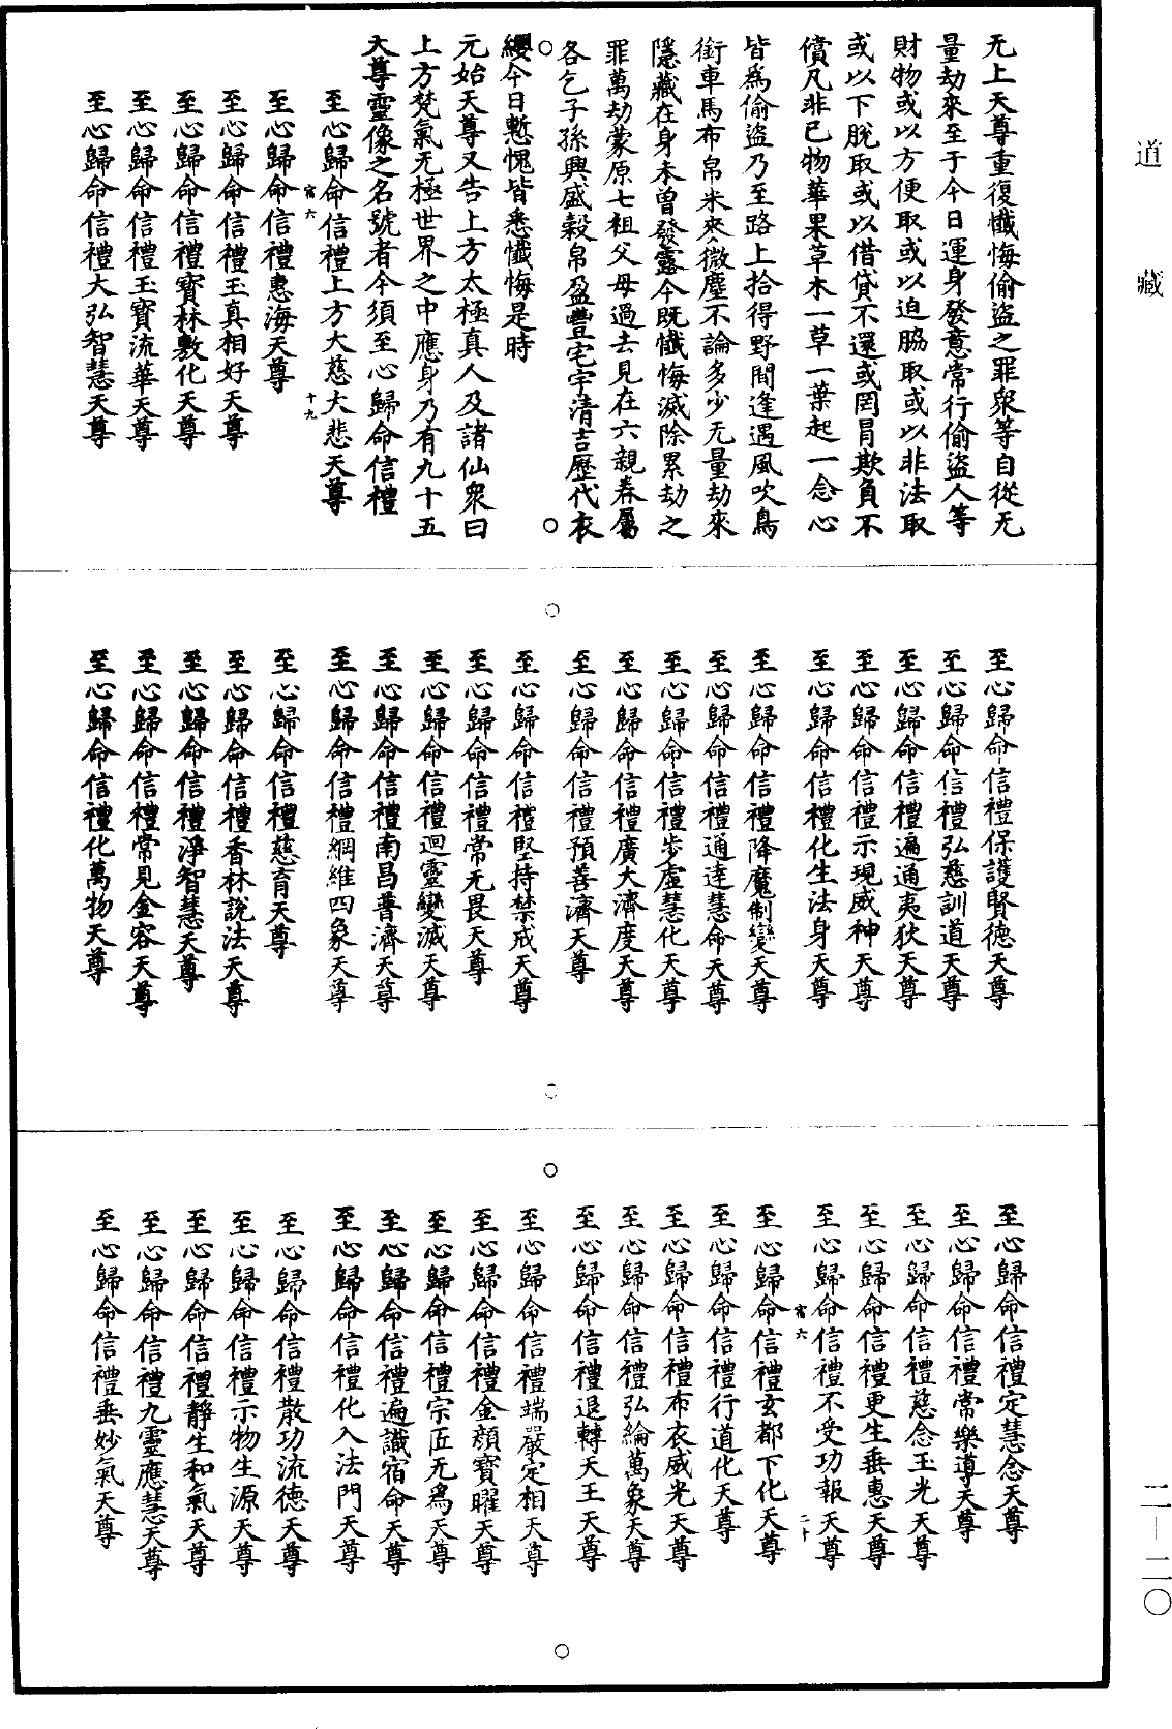 道藏
无上天尊重復懺悔偷盜之罪衆等自從无
量劫來至于今日運身發意常行偷盜人等
財物或以方便取或以迫脇取或以非法取
或以下脫取或以借貸不還或罔冐欺負不
償凡非已物華果草木一草一葉起一念心
皆爲偷盜乃至路上拾得野間逢遇風吹鳥
銜車馬布帛米夾微塵不論多少无量劫來
隱藏在身未曾發露今旣懺悔滅除累劫之
罪萬劫蒙原七祖父母過去見在六親眷屬
各乞子孫興盛穀帛盈豐宅宇清吉歷代衣
纓今日慙愧皆悉懺悔是時
元始天尊又告上方太極真人及諸仙衆曰
上方梵氣无極世界之中應身乃有九十五
天尊靈像之名號者今須至心歸命信禮
至心歸命信禮上方大慈大悲天尊
宿六 十九
至心歸命信禮惠海天尊
至心歸命信禮玉真相好天尊
至心歸命信禮寶林敷化天尊
至心歸命信禮玉寶流華天尊
至心歸命信禮大弘智慧天尊
至心歸命信禮保護賢德天尊
至心歸命信禮弘慈訓道天尊
至心歸命信禮遍通夷狄天尊
至心歸命信禮示現威神天尊
至心歸命信禮化生法身天尊
至心歸命信禮降魔制變天尊
至心歸命信禮通達慧命天尊
至心歸命信禮步虛慧化天尊
至心歸命信禮廣大濟度天尊
至心歸命信禮預善濟天尊
至心歸命信禮堅持禁戒天尊
至心歸命信禮常无畏天尊
至心歸命信禮迴靈變滅天尊
至心歸命信禮南昌普濟天尊
至心歸命信禮綱維四象天尊
至心歸命信禮慈育天尊
至心歸命信禮香林說法天尊
至心歸命信禮淨智慧天尊
至心歸命信禮常見金容天尊
至心歸命信禮化萬物天尊
至心歸命信禮定慧念天尊
至心歸命信禮常樂導天尊
至心歸命信禮慈念玉光天尊
至心歸命信禮更生垂惠天尊
至心歸命信禮不受功報天尊
宿六 二十
至心歸命信禮玄都下化天尊
至心歸命信禮行道化天尊
至心歸命信禮布衣威光天尊
至心歸命信禮弘綸萬象天尊
至心歸命信禮退轉天王天尊
至心歸命信禮端嚴定相天尊
至心歸命信禮金顏寶曜天尊
至心歸命信禮宗匠无爲天尊
至心歸命信禮遍識宿命天尊
至心歸命信禮化入法門天尊
至心歸命信禮散功流德天尊
至心歸命信禮示物生源天尊
至心歸命信禮靜生和氣天尊
至心歸命信禮九靈應慧天尊
至心歸命信禮垂妙氣天尊
二—二〇